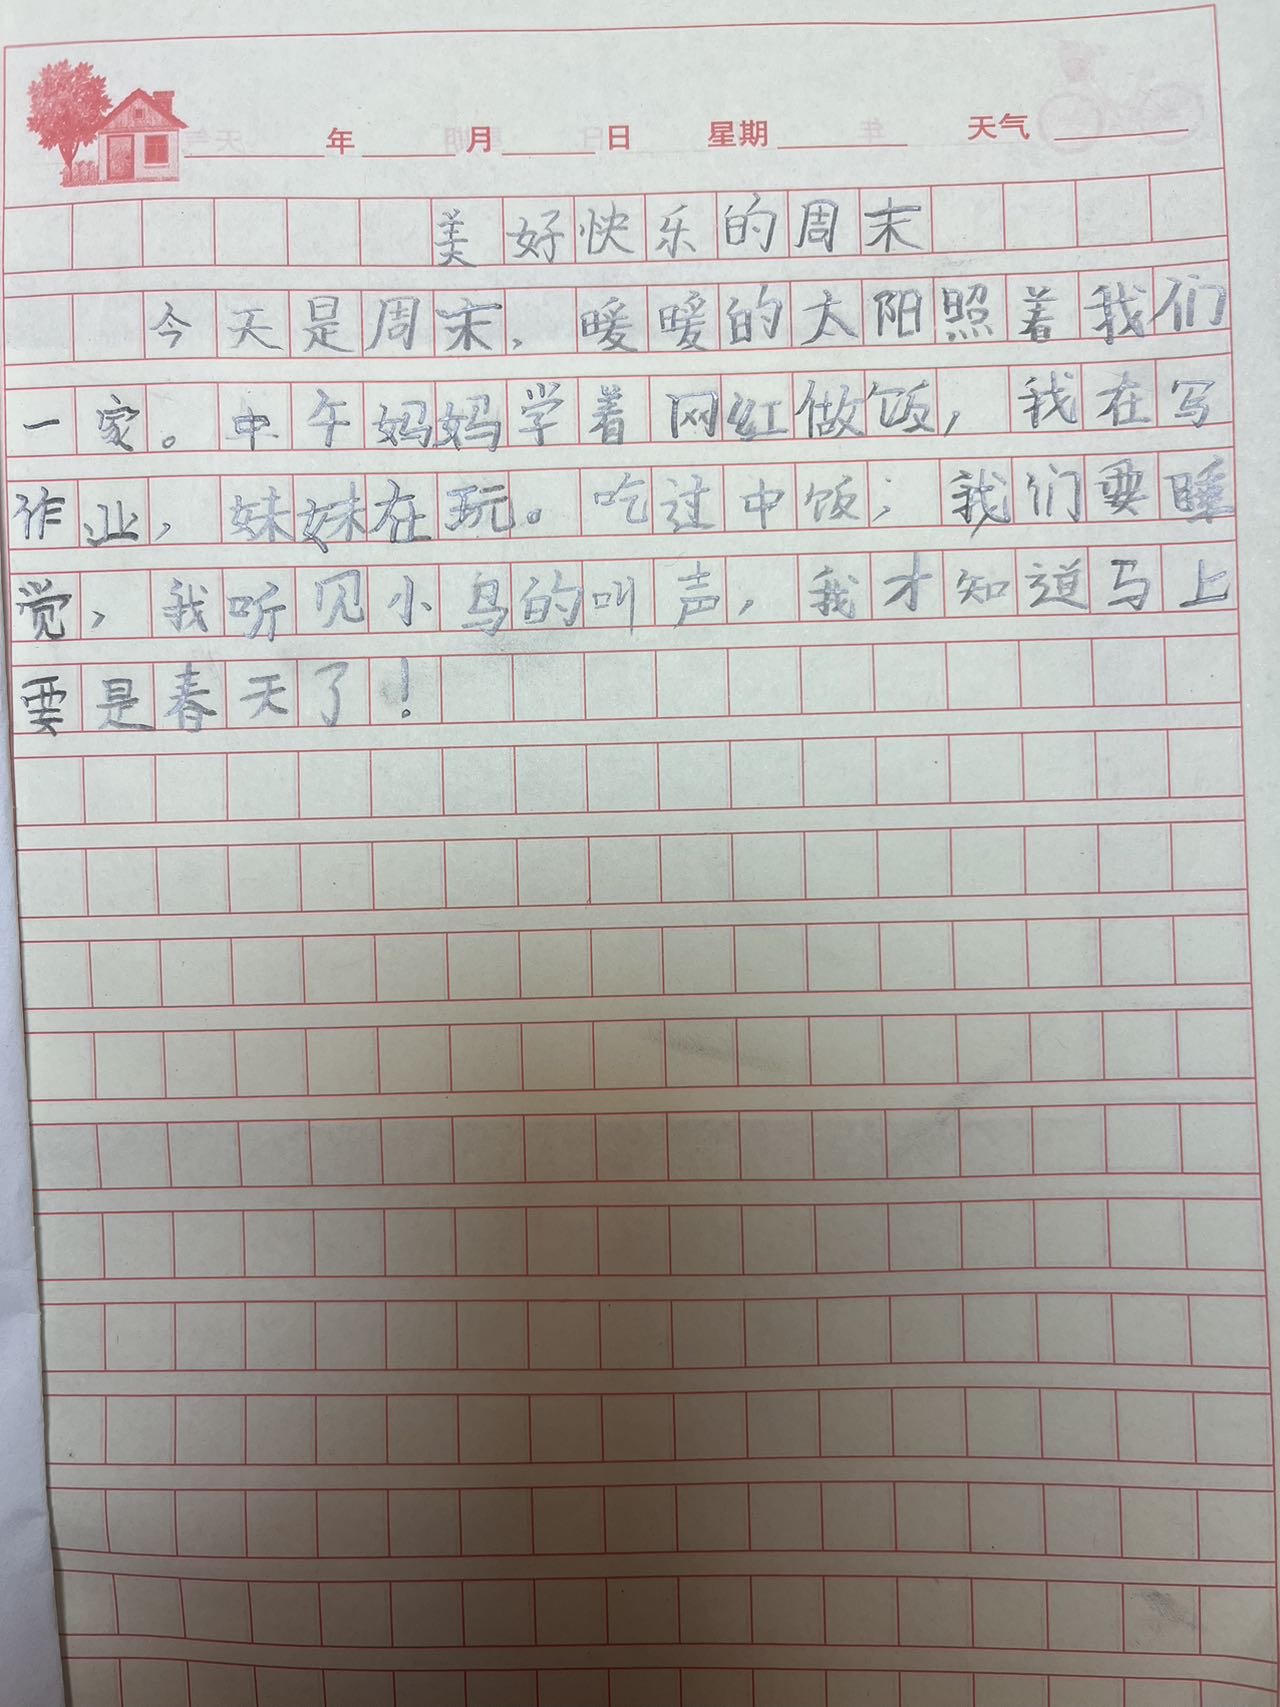 年 月 日 星期 天气
美好快乐的周末
今天是周末，暖暖的太阳照着我们
一家。中午妈妈学着网红做饭，我在写
作业，妹妹在玩。吃过中饭；我们要睡
觉，我听见小鸟的叫声，我才知道马上
要是春天了！